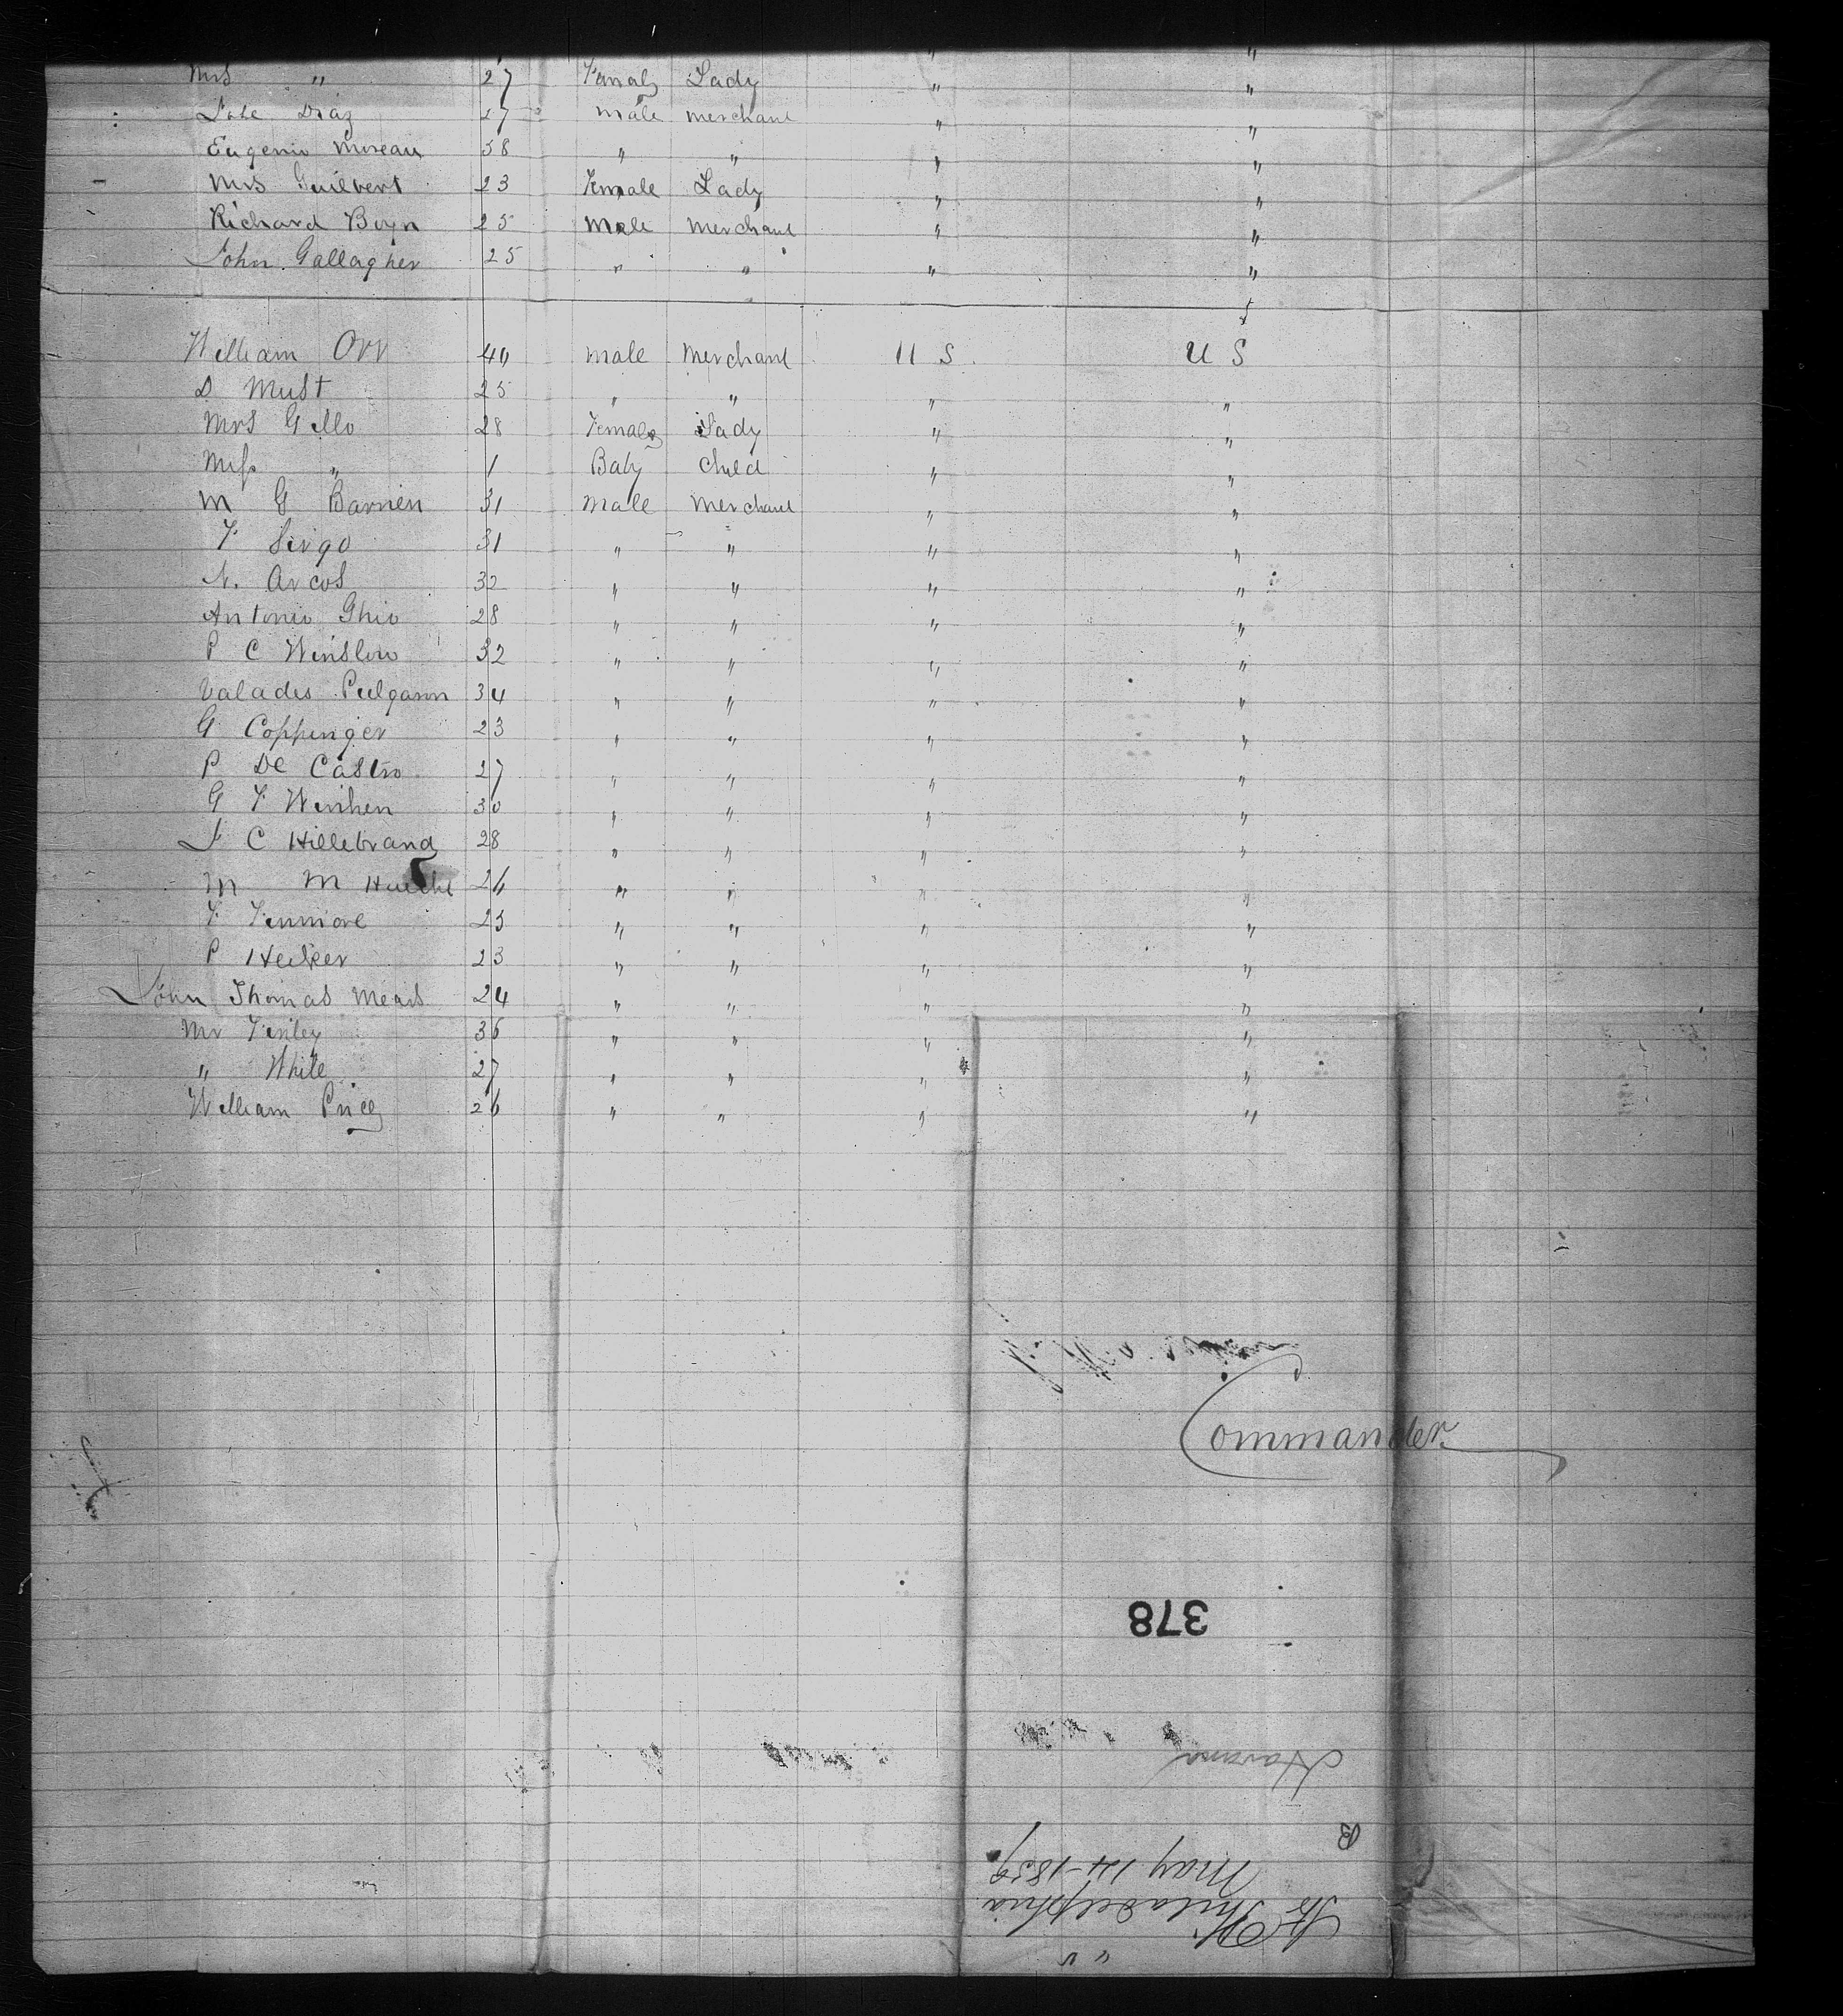 Mrs " 27 Female Lady " "
Diaz 27 male merchant " "
Eugenio Moreau 38 " " " "
Mrs Guilbert 23 Female Lady " "
Richard 25 Male Merchant " "
John Gallagher 25 " " " "
William Orr 40 male Merchant U S U S
D Must 25 " " " "
Mrs Gello 28 Female Lady " "
Miss " 1 Baby Child " "
M G 31 male Merchant " "
F Sirgo 31 " " " "
N. Arcos 32 " " " "
Antonio Ghio 28 " " " "
P C Winslow 32 " " " "
Valades 34 " " " "
G Coppinger 23 " " " "
P De Castro 27 " " " "
G F 30 " " " "
J C Hillebrand 28 " " " "
M M 26 " " " "
F Fenmore 25 " " " "
P Hecker 23 " " " "
John Thomas Mears 24 " " " "
Mr Finley 36 " " " "
" White 27 " " " "
William Price 26 " " " "
Commander
378
Havana
B
May 14-1859
St Philadelphia